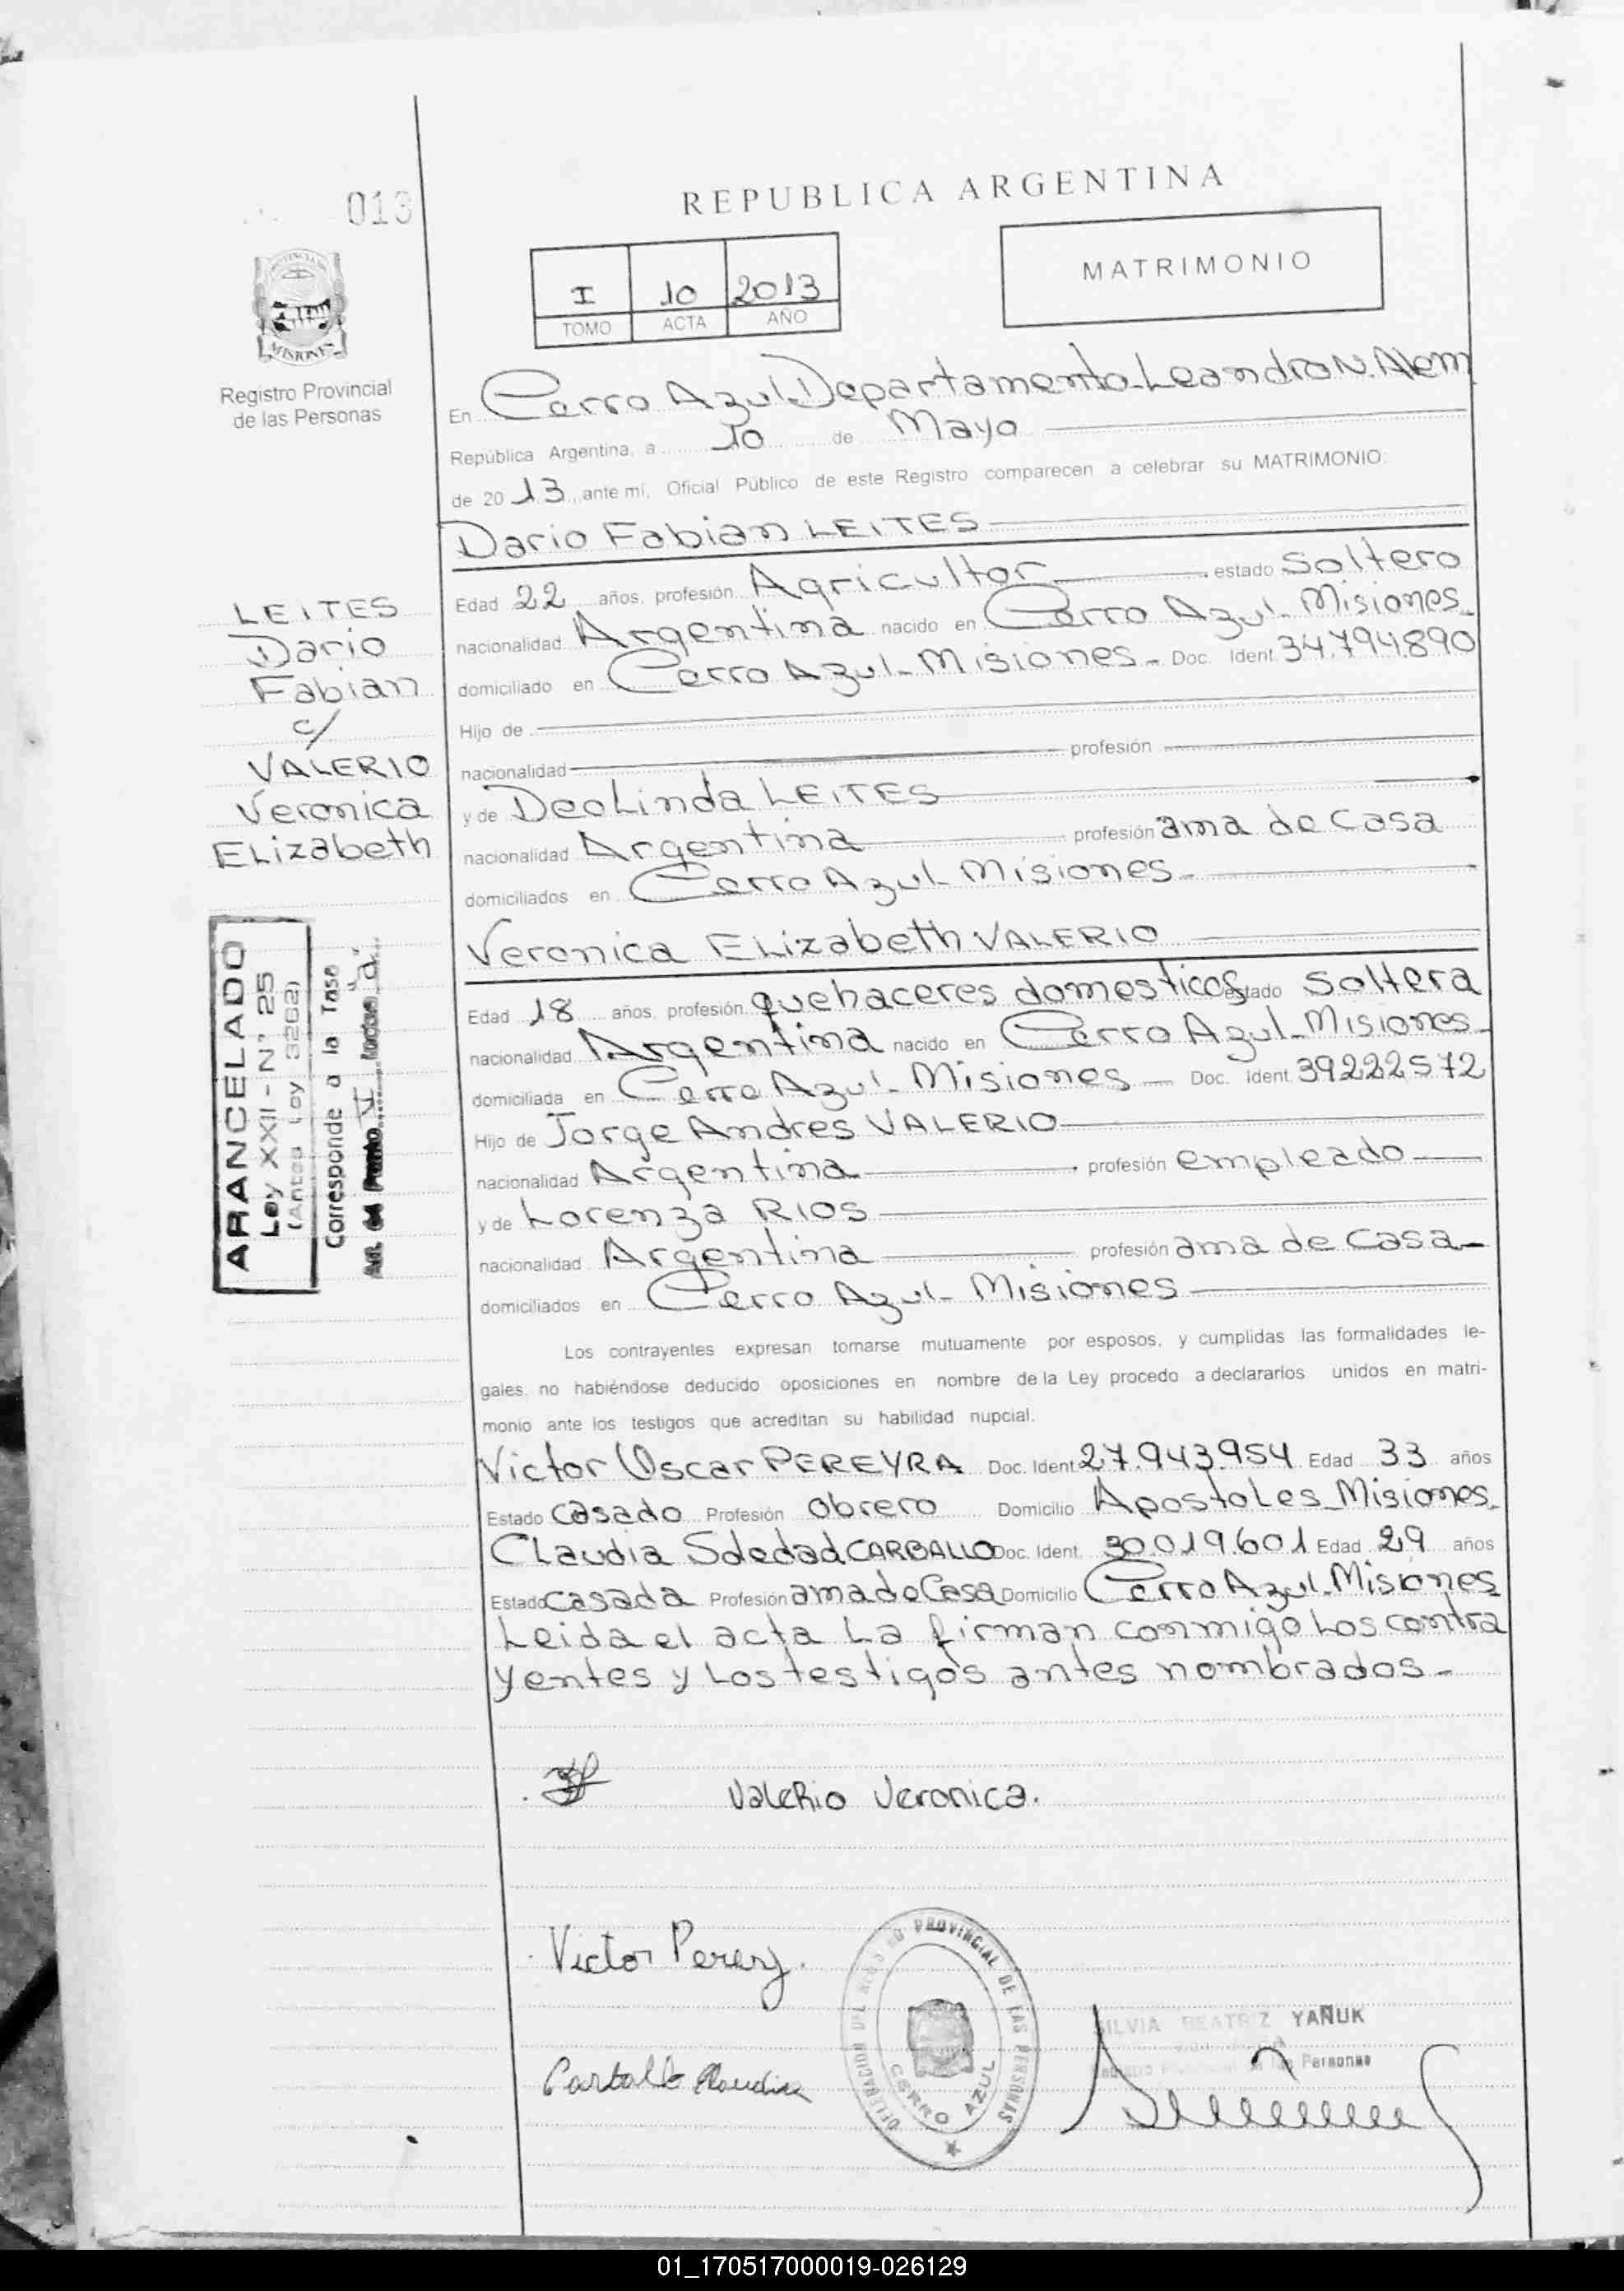 013
REPUBLICA ARGENTINA
I 10 2013
TOMO ACTA AÑO
MATRIMONIO
MISIONES
Registro Provincial
de las Personas
En Cerro Azul Departamento Leandro N. Alem
República Argentina, a 10 de Mayo
de 2013 ante mi, Oficial Público de este Registro comparecen a celebrar su MATRIMONIO:
Dario Fabian LEITES
Edad 22 años, profesión Agricultor estado Soltero
nacionalidad Argentina nacido en Cerro Azul - Misiones
domiciliado en Cerro Azul - Misiones - Doc. Ident. 34.794.890
Hijo de
nacionalidad profesión
y de DeoLinda LEITES
nacionalidad Argentina profesión ama de casa
domiciliados en Cerro Azul - Misiones -
LEITES
Dario
Fabian
c/
VALERIO
Veronica
ELizabeth
ARANCELADO
Ley XXII - N° 25
(Antes Ley 3262)
Corresponde a la Tasa
Veronica ELizabeth VALERIO
Edad 18 años, profesión quehaceres domesticos estado Soltera
nacionalidad Argentina nacido en Cerro Azul - Misiones -
domiciliada en Cerro Azul - Misiones - Doc. Ident. 39222572
Hijo de Jorge Andres VALERIO
nacionalidad Argentina profesión empleado
y de Lorenza RIOS
nacionalidad Argentina profesión ama de casa -
domiciliados en Cerro Azul - Misiones
Los contrayentes expresan tomarse mutuamente por esposos, y cumplidas las formalidades le-
gales, no habiéndose deducido oposiciones en nombre de la Ley procedo a declararlos unidos en matri-
monio ante los testigos que acreditan su habilidad nupcial.
Victor Oscar PEREYRA Doc. Ident. 27.943.954 Edad 33 años
Estado Casado Profesión Obrero Domicilio Apostoles - Misiones.
Claudia Soledad CARBALLO Doc. Ident. 30.019.601 Edad 29 años
Estado Casada Profesión ama de Casa Domicilio Cerro Azul - Misiones
Leida el acta La firman conmigo Los contra
yentes y Los testigos antes nombrados -
ValeRio Veronica.
Victor Perey.
Carballo Claudia
DELEGACION DEL REGISTRO PROVINCIAL DE LAS PERSONAS
CERRO AZUL
SILVIA BEATRIZ YAÑUK
Personas
01_170517000019-026129